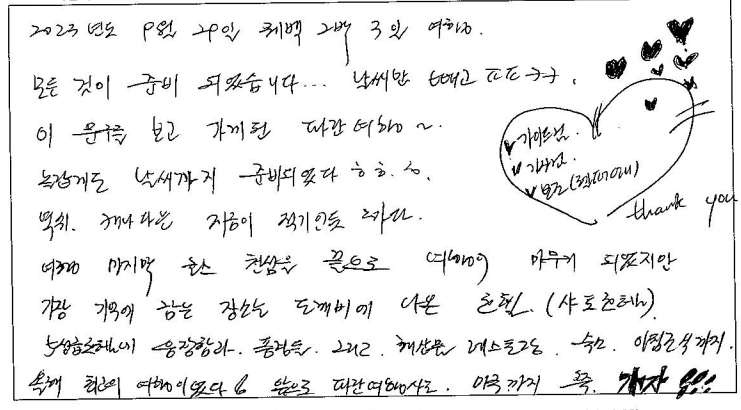 2023년도 9월 29일 퀘백 2박 3일 여행.
모든 것이 준비 되었습니다... 날씨만 빼고 ㅠㅠㅋㅋ.
이 문구를 보고 가게된 파란여행~.
놀랍게도 날씨까지 준비되었다 ㅎㅎ.
역시. 캐나다는 지금이 적기인듯 하다.
여행 마지막 코스 천섬을 끝으로 여행이 마무리 되었지만
가장 기억에 남는 장소는 도깨비에 나온 호텔. (샤토호텔)
웅장함과. 풍경들. 그리고. 해산물 레스토랑. 숙소. 아침조식까지.
올해 최고의 여행이었다 앞으로 파란여행사로. 미국까지 쭉. 가자 !!!
가이드님.
기사님.
thank you